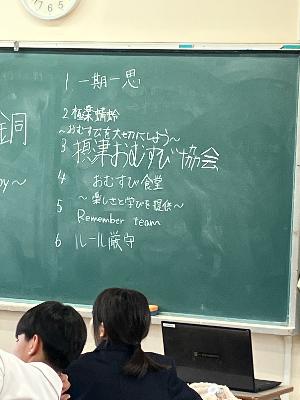 7 6 5
1 一期一思
2 極楽蜻蛉
〜おむすびを大切にしよう〜
3 摂津おむすび協会
4 おむすび食堂
〜楽しさと学びを提供〜
5 Remember team
6 ルール厳守
金同
by〜